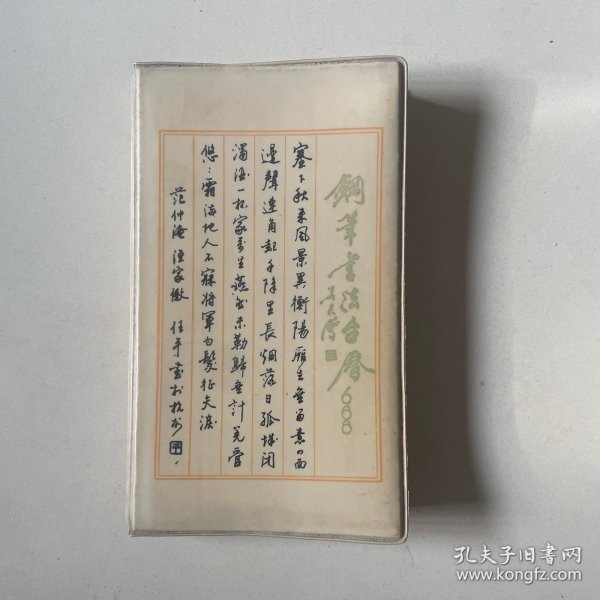 鋼筆書法台曆
1988
塞下秋来風景異衡陽雁去無留意四面
邊聲連角起千障里長烟落日孤城闭
濁酒一杯家萬里燕然未勒歸無計羌管
悠悠霜满地人不寐将軍白髮征夫淚
范仲淹 渔家傲 任平書于杭州
孔夫子旧書网
www.kongfz.com